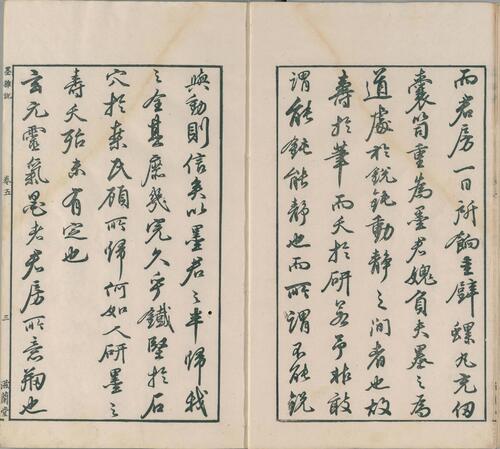 而君房一日所餉圭璧螺丸充仞
囊笥重為墨君媿負夫墨之為
道處於銳鈍動靜之間者也故
壽於筆而夭於研若予非敢
謂能鈍能靜也而所謂不能銳
與動則信矣以墨君之半歸我
之全其庶幾完久乎鐵堅於石
穴於桑氏顧所歸何如人研墨之
壽夭殆未有定也
玄元靈氣墨者君房所意也
卷五
三
滋蘭堂